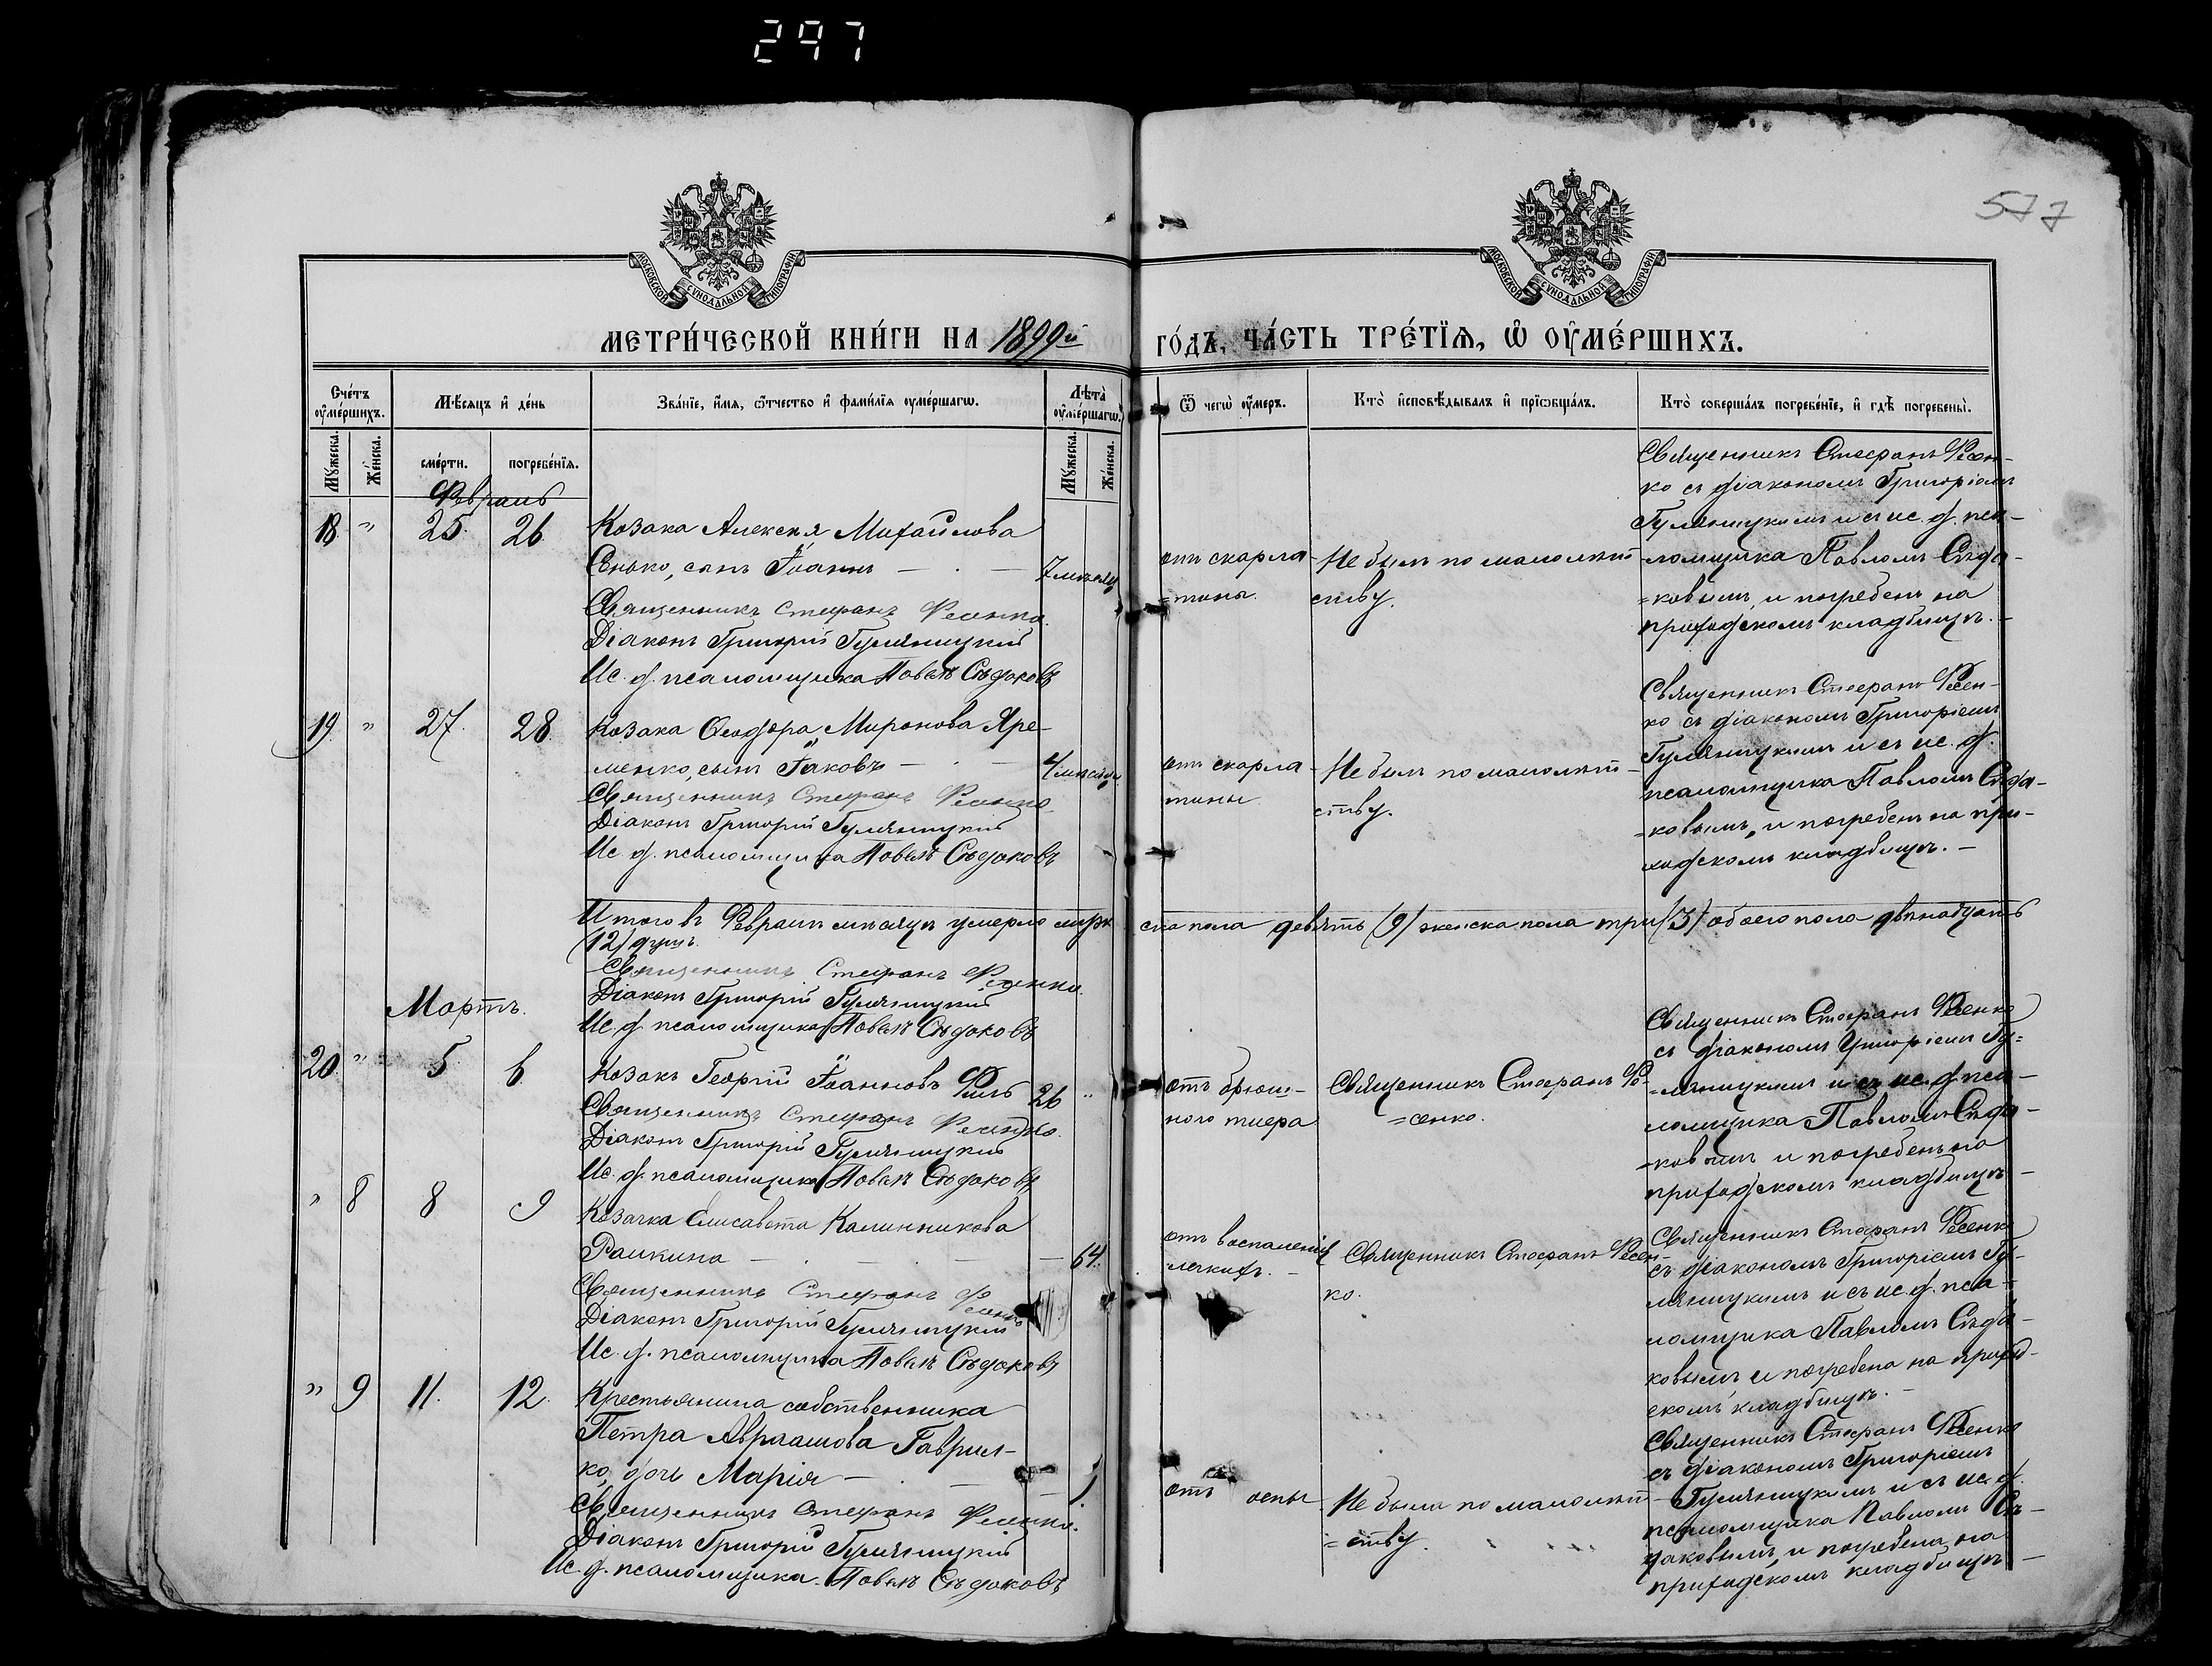 297
577
МОСКОВСКОЙ СѴНОДАЛЬНОЙ ТИПОГРАФІИ
МОСКОВСКОЙ СѴНОДАЛЬНОЙ ТИПОГРАФІИ
МЕТРИ́ЧЕСКОЙ КНИ́ГИ НА 1899й ГО́ДЪ, ЧА́СТЬ ТРЕ́ТЇѦ, Ѡ҆ ОУ҆МЕ́РШИХЪ.
Сче́тъ оу҆ме́ршихъ.
Мꙋ́жеска.
Же́нска.
Мѣ́сяцъ и҆ де́нь
сме́рти.
погребе́нїѧ.
Зва́нїе, и҆́мѧ, ѻ҆́тчество и҆ фами́лїѧ оу҆ме́ршагѡ.
Лѣ́та оу҆ме́ршагѡ.
Мꙋ́жеска.
Же́нска.
Ѿ чегѡ̀ оу҆́меръ.
Кто̀ и҆сповѣ́дывалъ и҆ прїѡбща́лъ.
Кто̀ соверша́лъ погребе́нїе, и҆ гдѣ̀ погребены̀.
Февраль
18 " 25. 26
Козака Алексѣя Михайлова
Енько, сынъ Іоаннъ — . — 7 мѣсяц
Священникъ Стефанъ Фесенко.
Діаконъ Григорій Гуляницкій
Ис. д. псаломщика Павелъ Сѣдаковъ
отъ скарла-
=тины.
Не былъ по малолѣт-
ству.
Священникъ Стефанъ Фесен-
ко съ діакономъ Григоріемъ
Гуляницкимъ и съ ис. д. пса-
ломщика Павломъ Сѣда-
=ковымъ, и погребенъ на
приходскомъ кладбищѣ. —
19. " 27. 28
Козака Ѳеодора Миронова Яре-
менко, сынъ Іаковъ — . — 4 мѣсяца
Священникъ Стефанъ Фесенко
Діаконъ Григорій Гуляницкій
Ис. д. псаломщика Павелъ Сѣдаковъ
отъ скарла-
тины
Не былъ по малолѣт-
ству.
Священникъ Стефанъ Фесен-
ко съ діакономъ Григоріемъ
Гуляницкимъ и съ ис. д.
псаломщика Павломъ Сѣда-
=ковымъ, и погребенъ на при-
ходскомъ кладбищѣ. —
Итого въ Февралѣ мѣсяцѣ умерло муж ска пола девять (9) женска пола три (3) обоего пола двѣнадцать
(12) душъ.
Священникъ Стефанъ Фесенко.
Діаконъ Григорій Гуляницкій
Ис. д. псаломщика Павелъ Сѣдаковъ
Мартъ.
20 " 5 6
Козакъ Георгій Іоанновъ Филь 26 "
Священникъ Стефанъ Фесенко.
Діаконъ Григорій Гуляницкій
Ис. д. псаломщика Павелъ Сѣдаковъ
отъ брюш-
ного тифа
Священникъ Стефанъ Фе-
=сенко.
Священникъ Стефанъ Фесенко
съ діакономъ Григоріемъ Гу=
=ляницкимъ и съ ис. д. пса-
ломщика Павломъ Сѣда-
=ковымъ и погребенъ на
приходскомъ кладбищѣ —
" 8 8 9
Козачка Елисавета Калинникова
Рашкина — . — . — 64.
Священникъ Стефанъ Фесенко
Діаконъ Григорій Гуляницкій
Ис. д. псаломщика Павелъ Сѣдаковъ
отъ воспаленія
легкихъ. —
Священникъ Стефанъ Фесен-
ко.
Священникъ Стефанъ Фесенко
съ діакономъ Григоріемъ Гу-
ляницкимъ и съ ис. д. пса-
ломщика Павломъ Сѣда-
ковымъ и погребена на приход-
скомъ кладбищѣ. —
" 9 11. 12.
Крестьянина собственника
Петра Авраамова Гаврил-
ко, дочь Марія — . — 1
Священникъ Стефанъ Фесенко.
Діаконъ Григорій Гуляницкій
Ис. д. псаломщика Павелъ Сѣдаковъ
отъ оспы
Не была по малолѣт-
=ству.
Священникъ Стефанъ Фесенко
съ діакономъ Григоріемъ
Гуляницкимъ и съ ис. д.
псаломщика Павломъ Сѣ-
даковымъ, и погребена на
приходскомъ кладбищѣ —